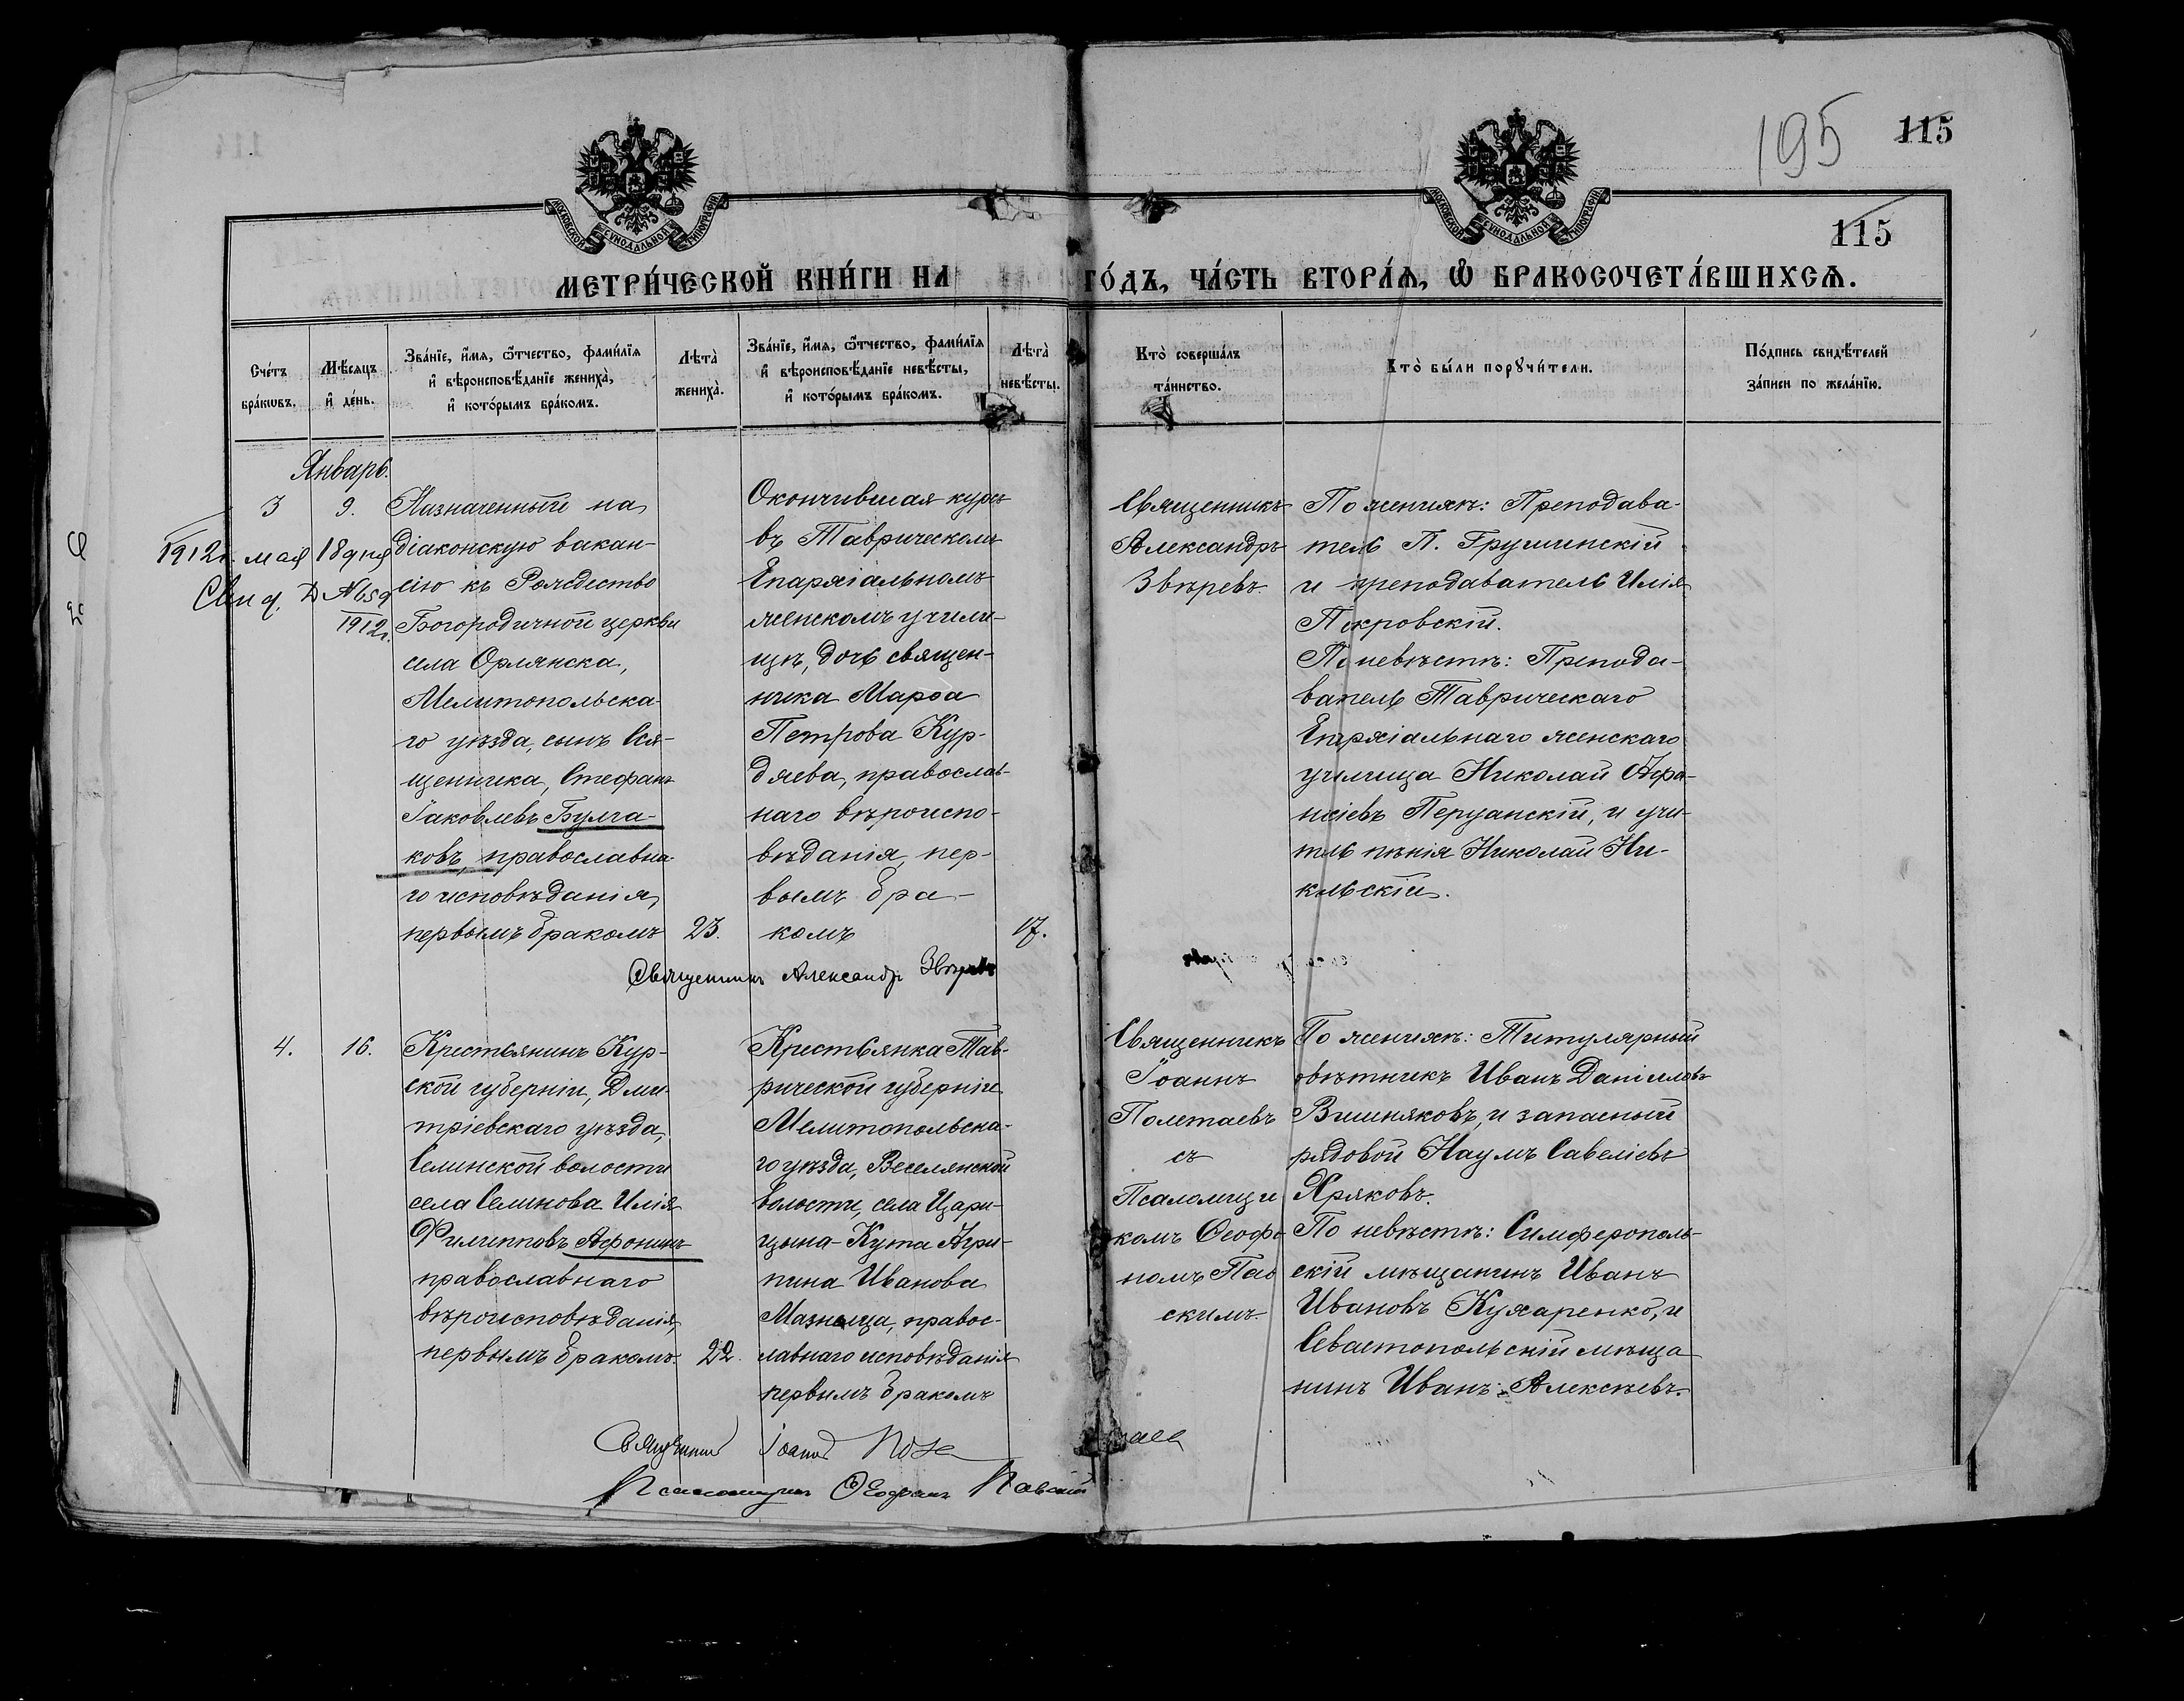 195
115
115
МОСКОВСКОЙ СУНОДАЛЬНОЙ ТИПОГРАФІИ
МОСКОВСКОЙ СУНОДАЛЬНОЙ ТИПОГРАФІИ
МЕТРИ́ЧЕСКОЙ КНИ́ГИ НА ГО́ДЪ, ЧА́СТЬ ВТОРА́Я, Ѿ БРАКОСОЧЕТА́ВШИХСЯ.
Сче́тъ
бра́кωвъ.
Мѣ́сяцъ
и҆ де́нь.
Зва́нїе, и҆́мя, ѻ҆́тчество, фами́лїя
и҆ вѣроисповѣ́данїе жениха̀,
и҆ кото́рымъ бра́комъ.
Лѣта̀
жениха̀.
Зва́нїе, и҆́мя, ѻ҆́тчество, фами́лїя
и҆ вѣроисповѣ́данїе невѣ́сты,
и҆ кото́рымъ бра́комъ.
Лѣта̀
невѣ́сты.
Кто̀ соверша́лъ
та́инство.
Кто̀ бы́ли порꙋчи́тели.
По́дпись свидѣ́телей
за́писи по жела́нїю.
Январь.
3
9.
1912г. мая 18 дня
Свид. №659
1912г.
Назначенный на
діаконскую вакан-
сію къ Рождество
Богородичной церкви
села Орлянска,
Мелитопольска-
го уѣзда, сынъ Свя-
щенника, Стефанъ
Іаковлевъ Булга-
ковъ, православна-
го исповѣданія,
первымъ бракомъ
23.
Окончившая курсъ
въ Таврическомъ
Епархіальномъ
женскомъ учили-
щѣ, дочь священ-
ника Марѳа
Петрова Кур-
дяева, православ-
наго вѣроиспо-
вѣданія, пер-
вымъ бра-
комъ
17.
Священникъ
Александръ
Звѣревъ.
По женихѣ: Преподава-
тель П. Грушинскій
и преподаватель Илія
Покровскій.
По невѣстѣ: Препода-
ватель Таврическаго
Епархіальнаго женскаго
училища Николай Афа-
насіевъ Перуанскій, и учи-
тель пѣнія Николай Ни-
кольскій.
Священникъ Александръ Звѣревъ
4.
16.
Крестьянинъ Кур-
ской губерніи, Дми-
тріевскаго уѣзда,
Селинской волости
села Селинова Илія
Филипповъ Афонинъ
православнаго
вѣроисповѣданія,
первымъ бракомъ.
22.
Крестьянка Тав-
рической губерніи
Мелитопольска-
го уѣзда, Веселянской
волости, села Цари-
цына-Кута Агри-
пина Иванова
православнаго исповѣданія
первымъ бракомъ
Священникъ
Іоаннъ
Полетаевъ
съ
Псаломщи
комъ Ѳеофа
номъ Пав
скимъ.
По женихѣ: Титулярный
совѣтникъ Иванъ Даніиловъ
Вишняковъ, и запасный
рядовой Наумъ Савеліевъ
Хряковъ.
По невѣстѣ: Симферополь-
скій мѣщанинъ Иванъ
Ивановъ Кухаренко, и
Севастопольскій мѣща
нинъ Иванъ Алексѣевъ.
Священникъ Іоаннъ Полетаев
Псаломщикъ Ѳеофанъ Павскій